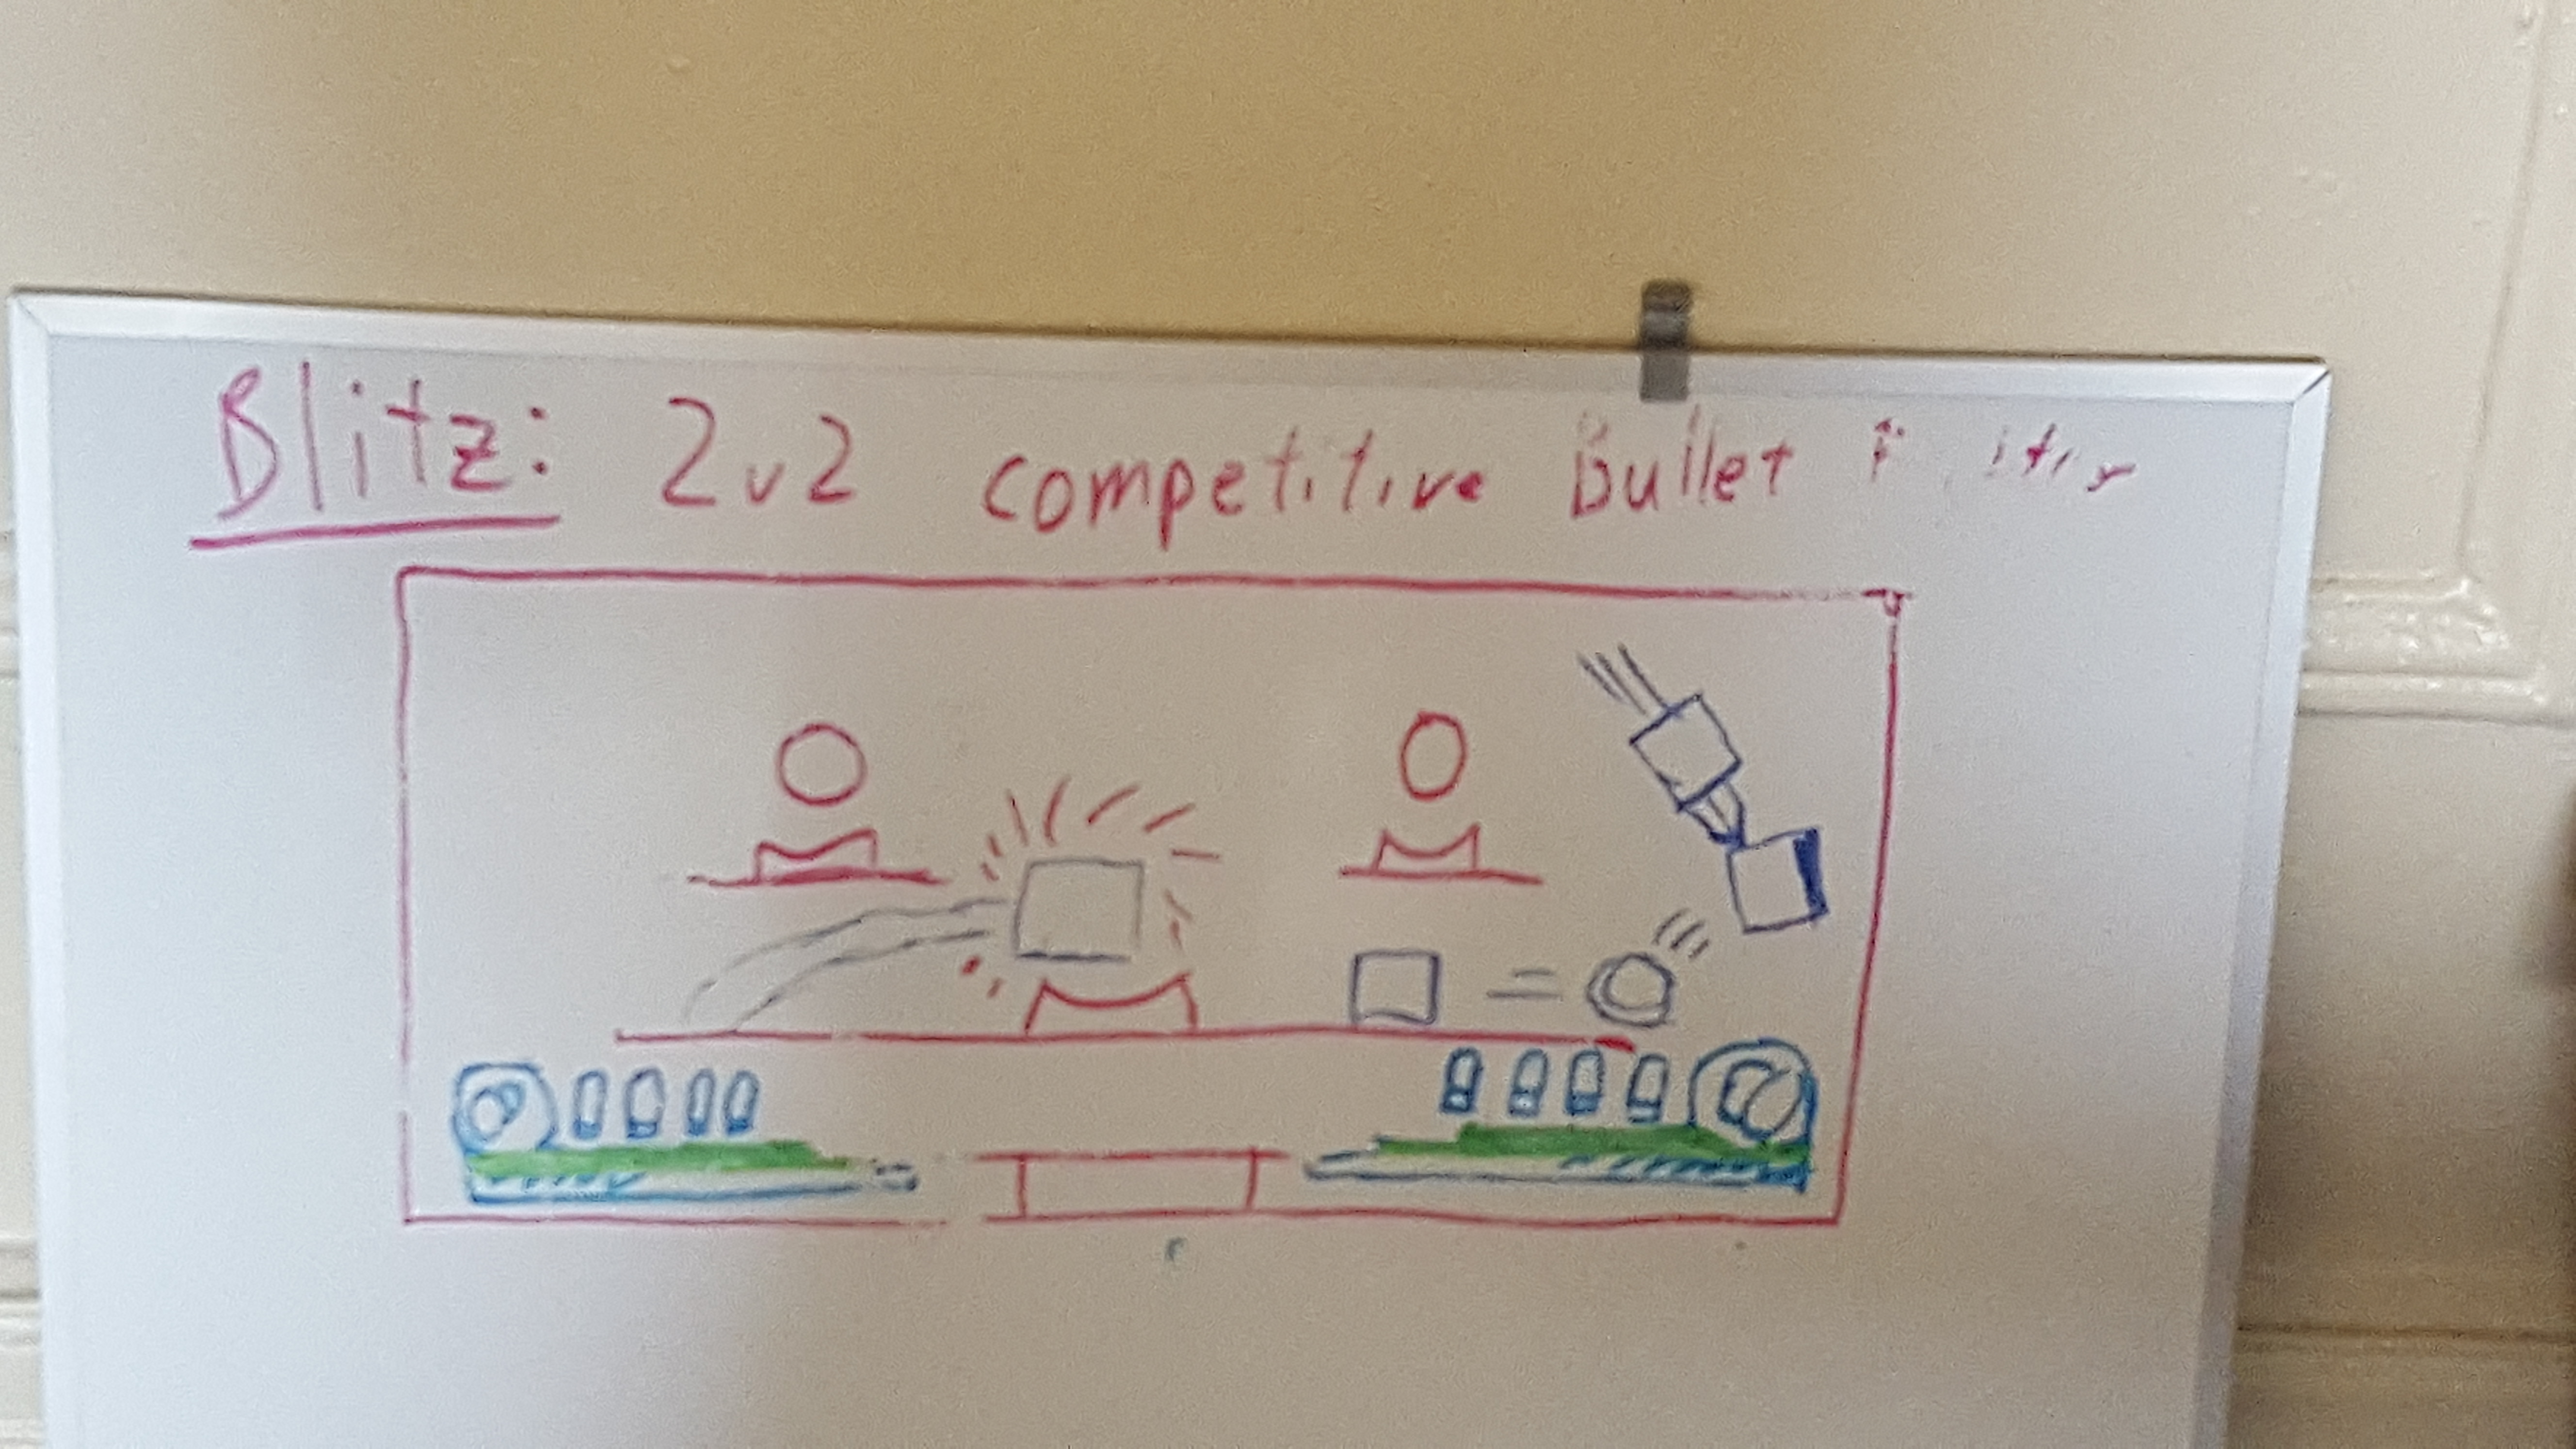 Blitz: 2v2 competitive Bullet